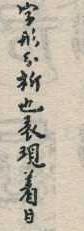 字形分析也表現着日